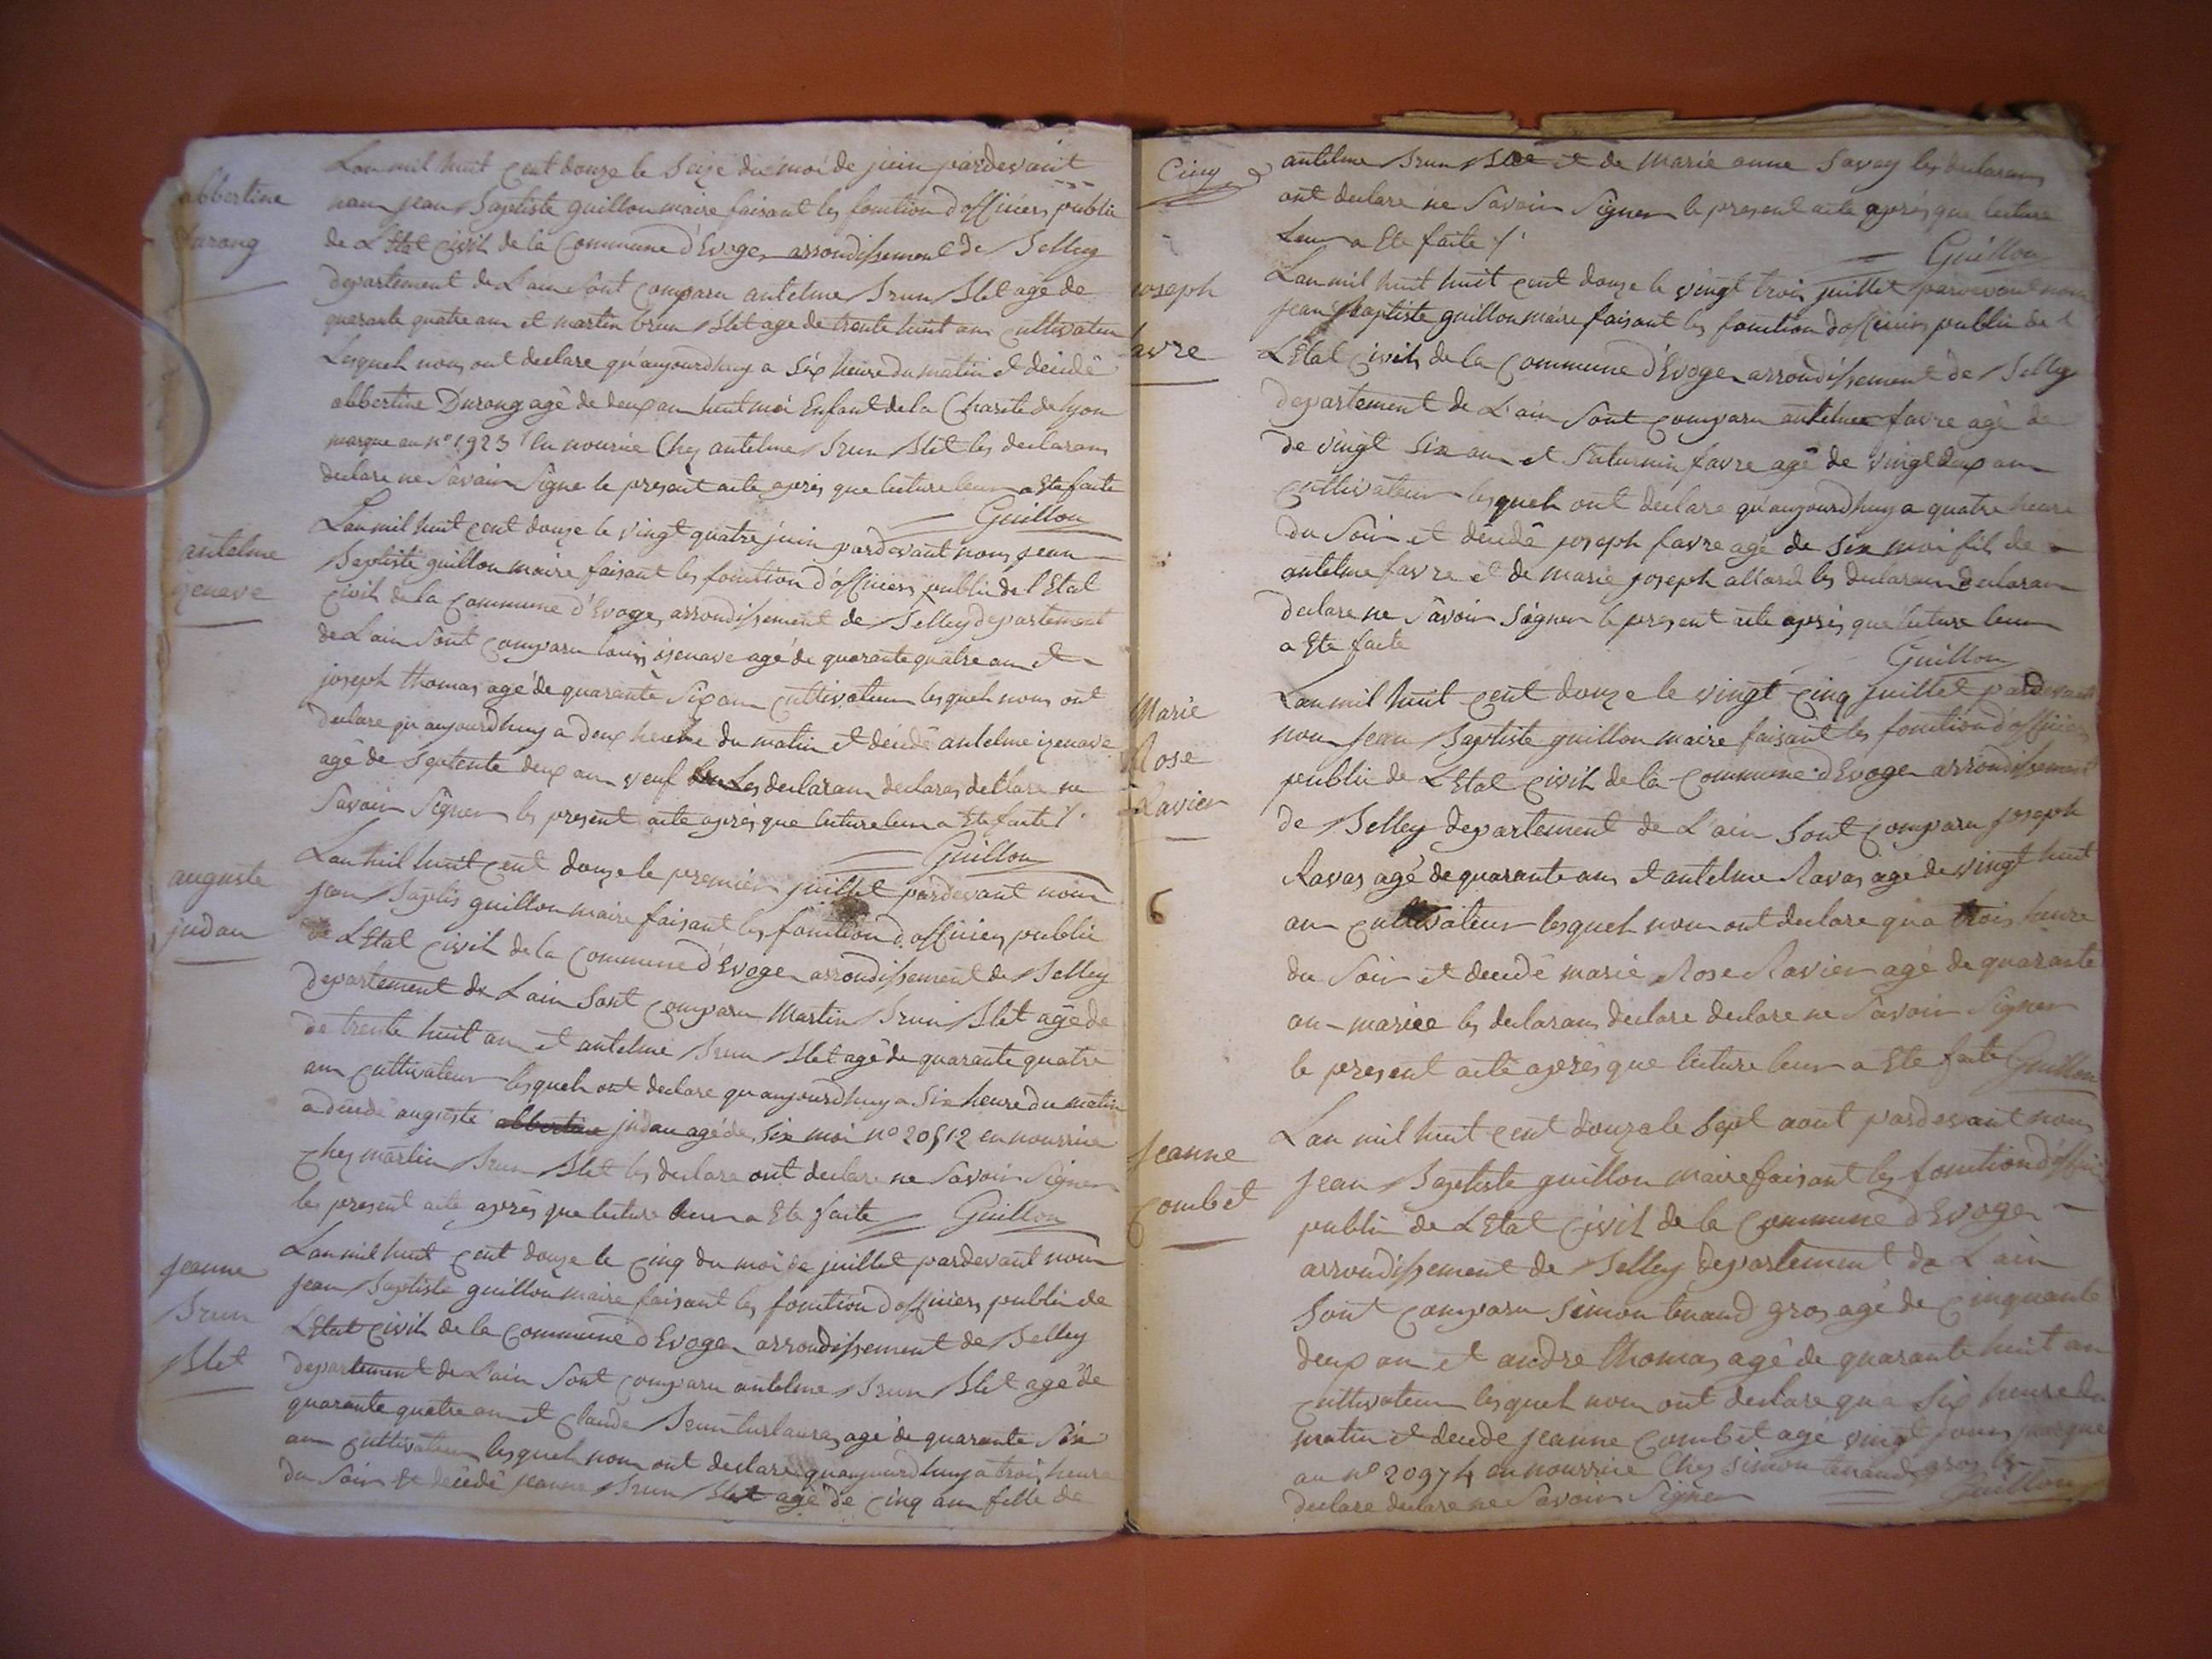 abbertine
durong
Lan mil huit cent douze le Seize du moi de juin pardevant
nous jean Baptiste guillon maire faisant les fonction d'officiers public
de L'Etat civil de la Commune d'Evoges arrondissement de Belley
departement de L'ain Sont comparu antelme Brun Blet agé de
quarante quatre ans et martin brun Blet age de trente huit ans cultivateur
Lesquels nous ont declare qu'aujourdhuy a Six heure du matin et décidé
abbertine Durong agé de deux an huit moi Enfant de la Charite de lyon
marque au no 1923 en nourrice Chez antelme Brun Blet les declarans
declare ne Savoir Signe le present acte après que lecture leur a Ete faite
Guillon
antelme
genave
Lan mil huit cent douze le vingt quatre juin pardevant nous jean
Baptiste guillon maire faisant les fonction d'officiers public de l'Etat
civil de la Commune d'Evoges arrondissement de Belley departement
de L'ain Sont comparu louis agé de quarante quatre an et
joseph thomas agé de quarante Six an cultivateur lesquels nous ont
declare qu'aujourdhuy a deux heure du matin et décidé antelme izenave
agé de Septente deux an veuf Les declarans declaras declare ne
Savoir Signer le present acte après que lecture leur a Ete faite
Guillon
auguste
judan
Lan mil huit cent douze le premier juillet pardevant nous
jean Baptis guillon maire faisant les fonction d'officiers public
de L'Etat civil de la Commune d'Evoges arrondissement de Belley
departement de L'ain Sont comparu Martin Brun Blet agé de
de trente huit an et antelme Brun Blet agé de quarante quatre
ans cultivateur lesquels ont declare qu'aujourdhuy a Six heure du matin
a décidé auguste abbertine judan agé de Six moi no 20512 en nourrice
chez martin Brun Blet les declare ont declare ne Savoir Signer
le present acte après que lecture leur a Ete faite Guillon
jeanne
Brun
Blet
Lan mil huit cent douze le cinq du moi de juillet pardevant nous
jean Baptiste guillon maire faisant les fonction d'officiers public de
L'Etat civil de la Commune d'Evoges arrondissement de Belley
departement de L'ain Sont comparu antelme Brun Blet agé de
quarante quatre an et claude Brun agé de quarante Six
an cultivateur lesquels nous ont declare qu'aujourdhuy a trois heure
du Soir et décidé jeanne Brun Blet agé de cinq an fille de
Cinq
antelme Brun Blet et de Marie anne Savey les declarans
ont declare ne Savoir Signer le present acte après que lecture
leur a Ete faite
Guillon
joseph
favre
Lan mil huit huit cent douze le vingt trois juillet pardevant nous
jean Baptiste guillon maire faisant les fonction d'officiers public de
L'Etat civil de la Commune d'Evoges arrondissement de Belley
departement de L'ain Sont comparu antelme favre agé de
de vingt Six an et Saturnin favre agé de vingt deux an
cultivateur lesquels ont declare qu'aujourdhuy a quatre heure
du Soir et décidé joseph favre agé de Six moi fils de
antelme favre et de marie joseph allard les declarans declarans
declare ne Savoir Signer le present acte après que lecture leur
a Ete faite
Guillon
Marie
Rose
Ravier
6
Lan mil huit cent douze le vingt cinq juillet pardevant
nous jean Baptiste guillon maire faisant les fonction d'officiers
public de L'Etat civil de la commune d'Evoges arrondissement
de Belley departement de L'ain Sont comparu joseph
Ravas agé de quarante ans et antelme Ravas agé de vingt huit
an cultivateur lesquels nous ont declare qu'a trois heure
du Soir et decidé marie Rose Ravier agé de quarante
an mariée les declarans declare declare ne Savoir Signer
le present acte après que lecture leur a Ete faite Guillon
jeanne
combet
Lan mil huit cent douze le Sept aout pardevant nous
jean Baptiste guillon maire faisant les fonction d'offici
public de L'Etat Civil de la Commune d'Evoges
arrondissement de Belley departement de L'ain
Sont comparu Simon tenand gros agé de cinquante
deux an et andre thomas agé de quarante huit an
cultivateur lesquels nous ont declare qu'a Six heure du
matin et decide jeanne combet agé vingt jours marque
au no 20974 en nourrice Chez Simon tenand gros les
declare declare ne Savoir Signer
Guillon